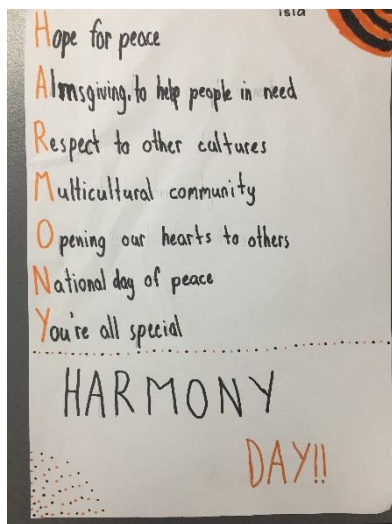 Isla
Hope for peace
Almsgiving.to help people in need
Respect to other cultures
Multicultural community
Opening our hearts to others
National day of peace
You're all special
HARMONY
DAY!!